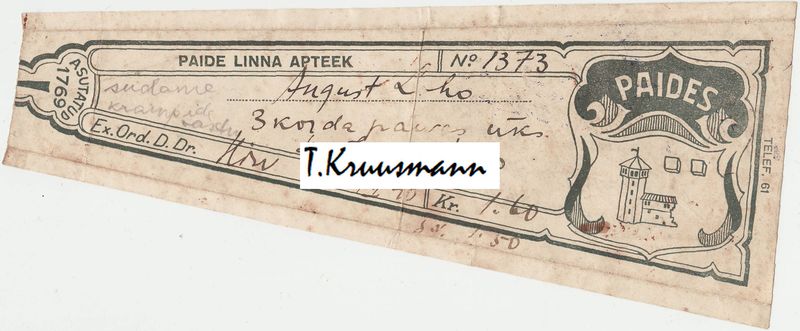 PAIDE LINNA APTEEK
Nº 1373
ASUTATUD 1769
südame
krampide
vastu
August
3 korda päevas üks
Ex. Ord. D. Dr.
T.Kruusmann
Kr. 1.60
1.50
PAIDES
TELEF. 61